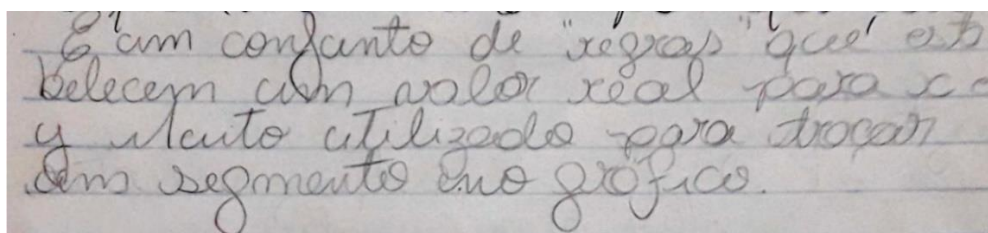 É um conjunto de "regras" que est
belecem um valor real para x e
y Muito utilizado para traçar
um segmento no gráfico.